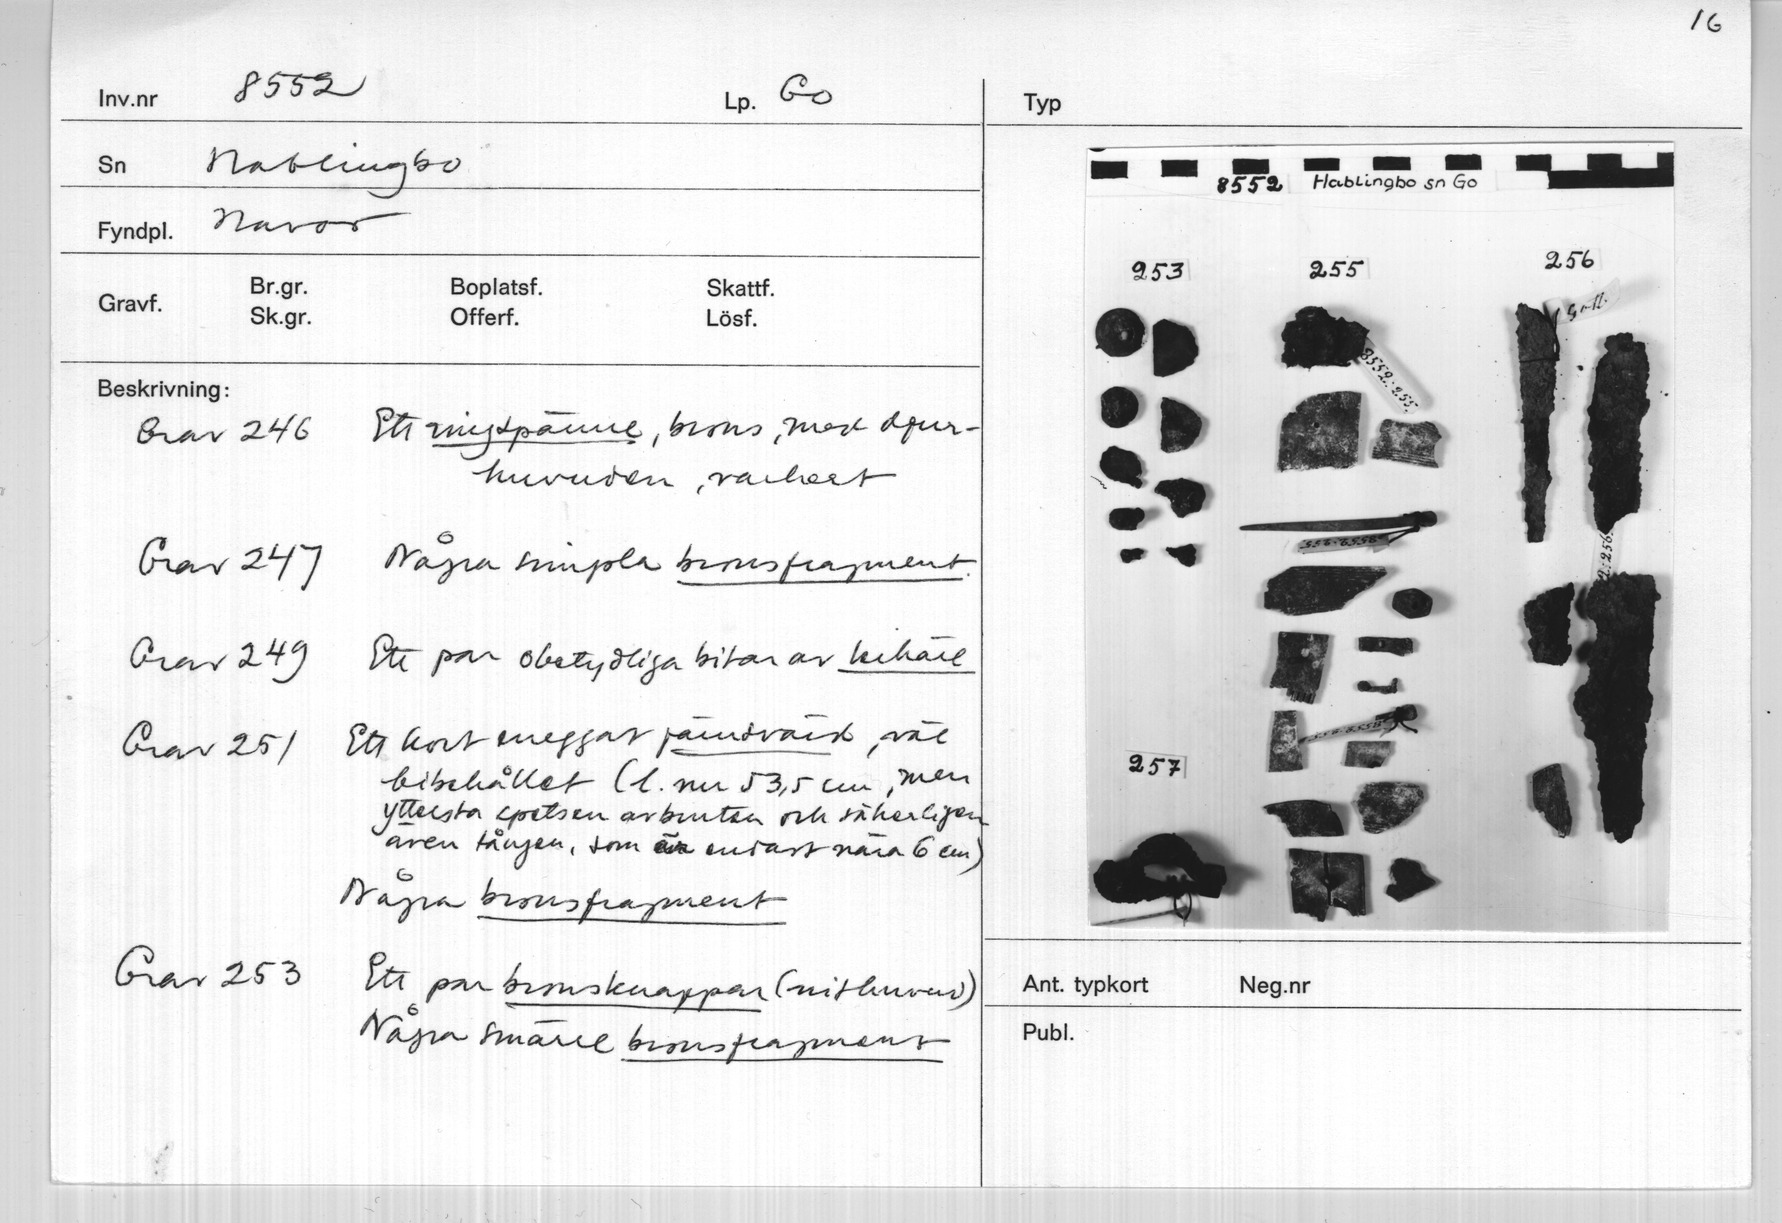 16
Inv.nr 8552 Lp. Go
Sn Hablingbo
Fyndpl. Havor
Gravf. Br.gr. Boplatsf. Skattf.
Sk.gr. Offerf. Lösf.
Beskrivning:
Grav 246 Ett ringspänne, brons, med djur-
huvuden, vackert
Grav 247 Några simpla bronsfragment.
Grav 249 Ett par obetydliga bitar av lerkärl
Grav 251 Ett kort eneggat järnsvärd, väl
bibehållet (l. nu 53,5 cm, men
yttersta spetsen avbruten och säkerligen
även tången, som är endast nära 6 cm)
Några bronsfragment
Grav 253 Ett par bronsknappar (nithuvud)
Några smärre bronsfragment
Typ
8552 Hablingbo sn Go
253 255 256
Gotl.
8552:255.
8552:255
2:256
257
Ant. typkort Neg.nr
Publ.